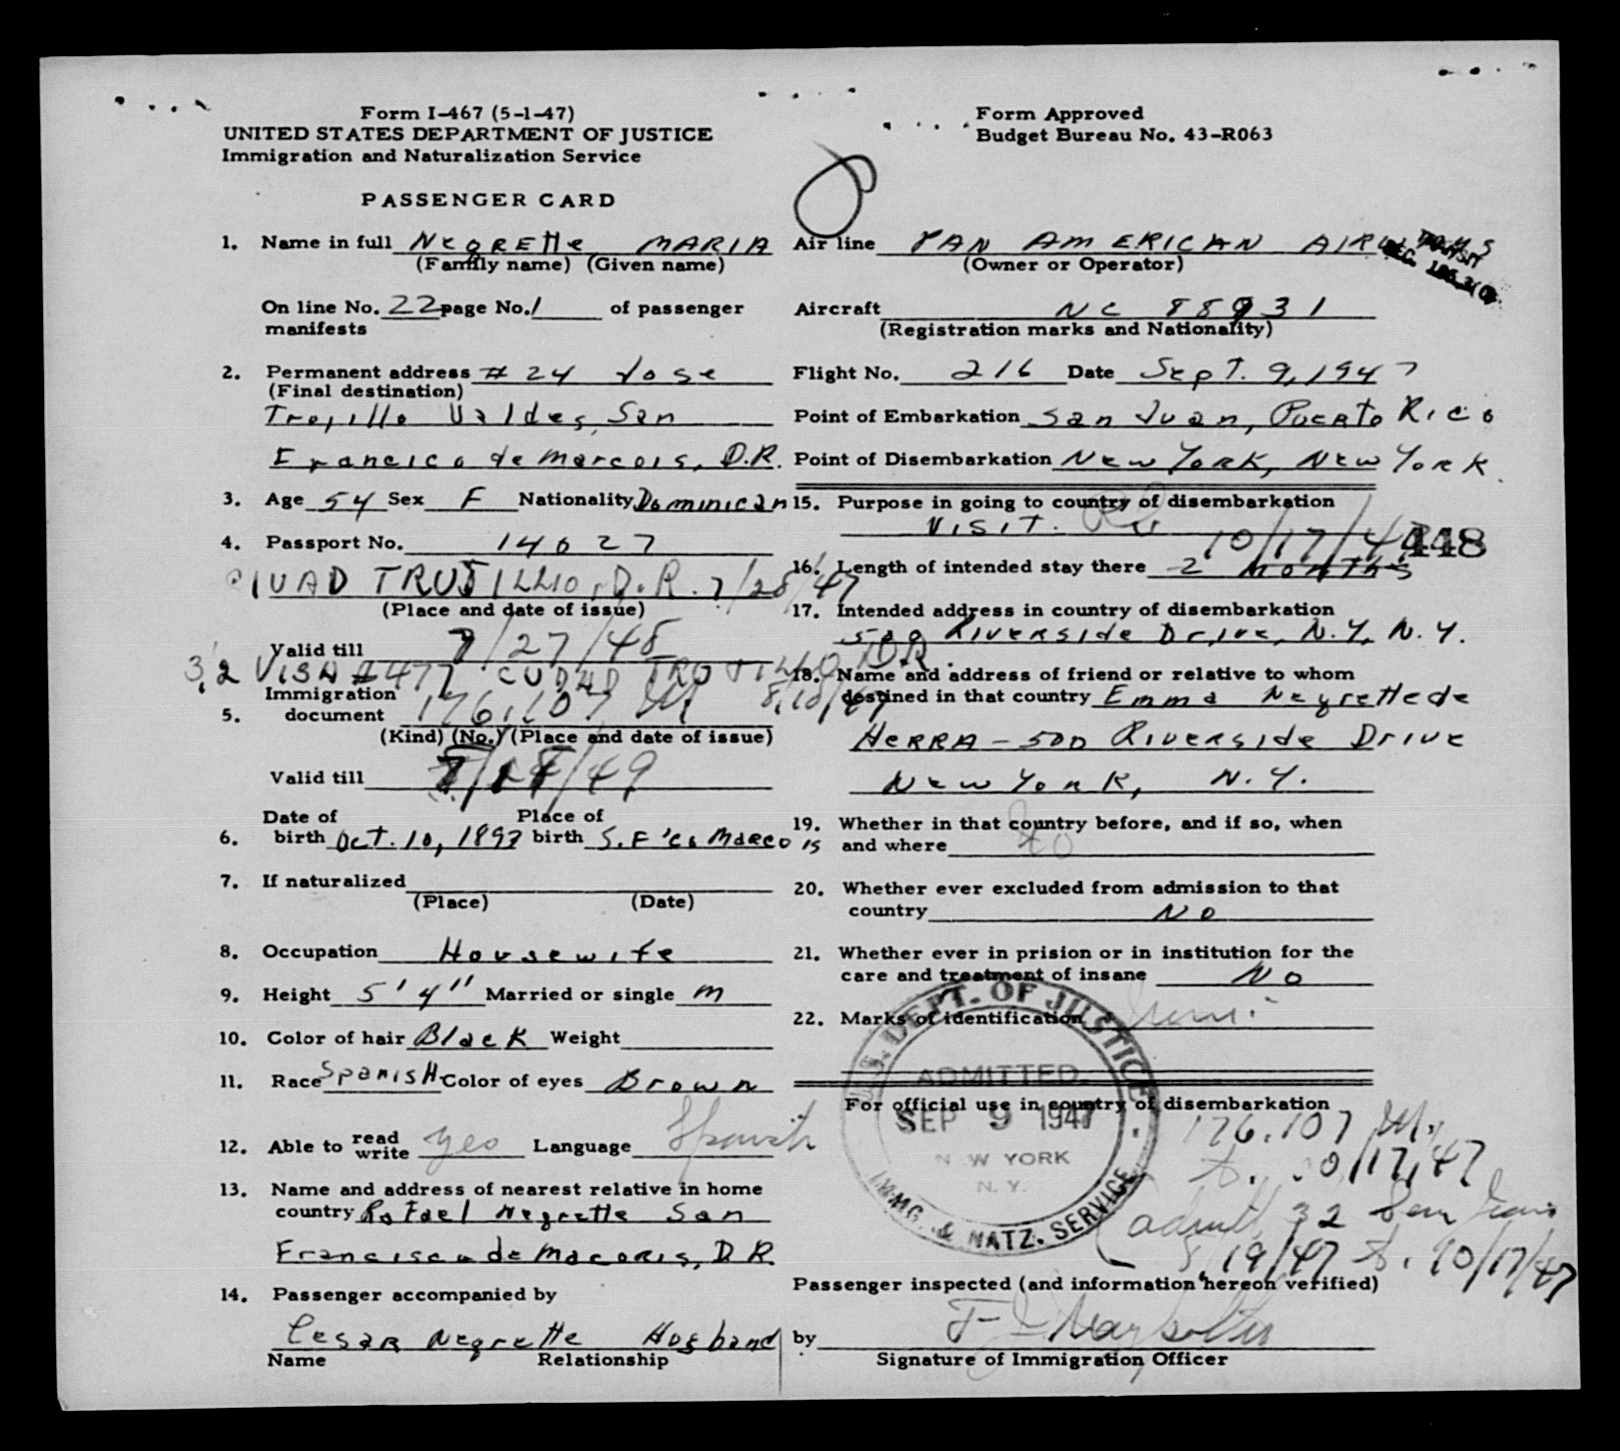 Form I-467 (5-1-47)
UNITED STATES DEPARTMENT OF JUSTICE
Immigration and Naturalization Service
Form Approved
Budget Bureau No. 43-R063
PASSENGER CARD
1. Name in full Negrette MARIA
(Family name) (Given name)
On line No. 22 page No. 1 of passenger
manifests
2. Permanent address # 24 Jose
(Final destination)
Trojillo Valdes, San
Francico de Marcois, D.R.
3. Age 54 Sex F Nationality Dominican
4. Passport No. 14027
CIUAD TRUJILLIO, D.R. 7/28/47
(Place and date of issue)
Valid till 7/27/48
3,2 VISA #477 CUDAD TRUJILLO DR.
Immigration
5. document 176,107 8/18/47
(Kind) (No.) (Place and date of issue)
Valid till /49
Date of Place of
6. birth Oct. 10, 1892 birth S. F'co Marcois
7. If naturalized
(Place) (Date)
8. Occupation Housewife
9. Height 5' 4" Married or single M
10. Color of hair Black Weight
11. Race Spanish Color of eyes Brown
12. Able to read write yes Language Spanish
13. Name and address of nearest relative in home
country Rafael Negrette San
Francisco de Macoris, D.R.
14. Passenger accompanied by
Cesar Negrette Husband
Name Relationship
Air line PAN AMERICAN AIRWAYS
(Owner or Operator)
Aircraft NC 88931
(Registration marks and Nationality)
Flight No. 216 Date Sept. 9, 1947
Point of Embarkation San Juan, Puerto Rico
Point of Disembarkation New York, New York
15. Purpose in going to country of disembarkation
Visit.
10/17/47
448
16. Length of intended stay there 2 months
17. Intended address in country of disembarkation
500 Riverside Drive, N.Y. N.Y.
18. Name and address of friend or relative to whom
destined in that country Emma Negrette de
HERRA - 500 Riverside Drive
New York, N.Y.
19. Whether in that country before, and if so, when
and where No
20. Whether ever excluded from admission to that
country No
21. Whether ever in prision or in institution for the
care and treatment of insane No
22. Marks of identification
For official use in country of disembarkation
U.S. DEPT. OF JUSTICE
ADMITTED
SEP 9 1947
NEW YORK
N.Y.
IMMG. & NATZ. SERVICE
176,107
10/17/47
admitted 32 San Juan
8/19/47 to 10/17/47
Passenger inspected (and information hereon verified)
by
Signature of Immigration Officer